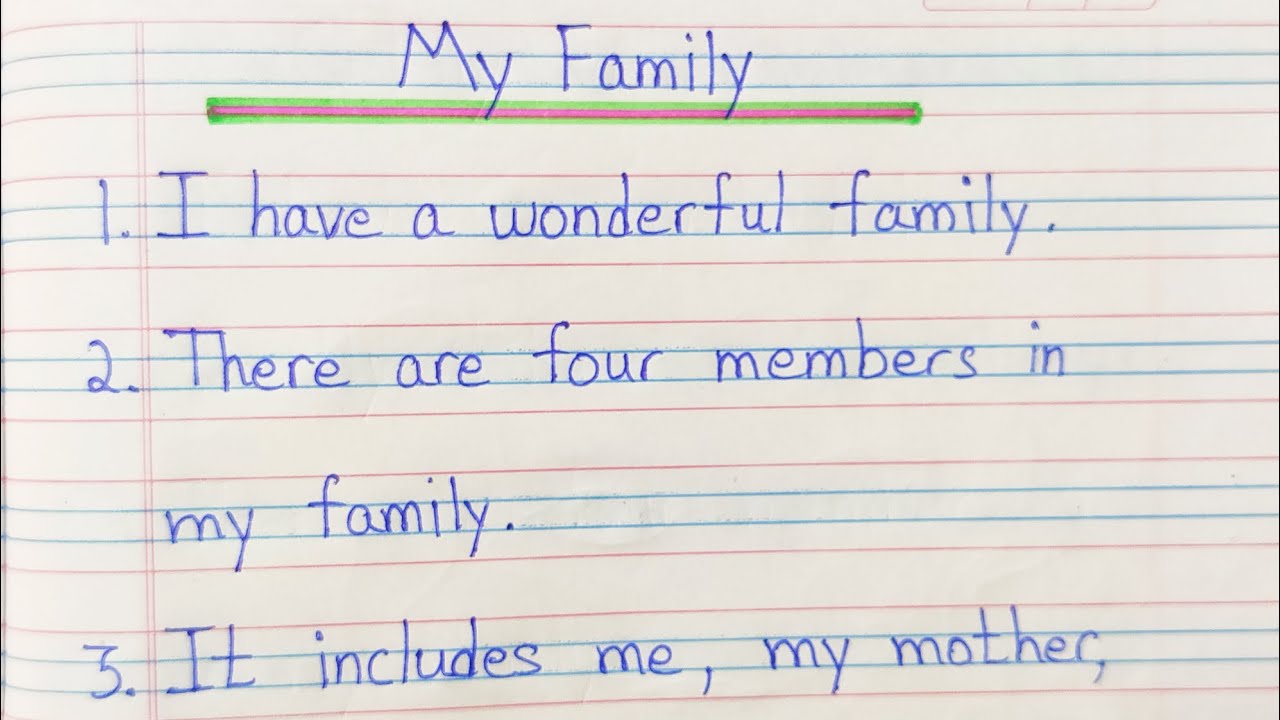 My Family
1. I have a wonderful family.
2. There are four members in
my family.
3. It includes me, my mother,